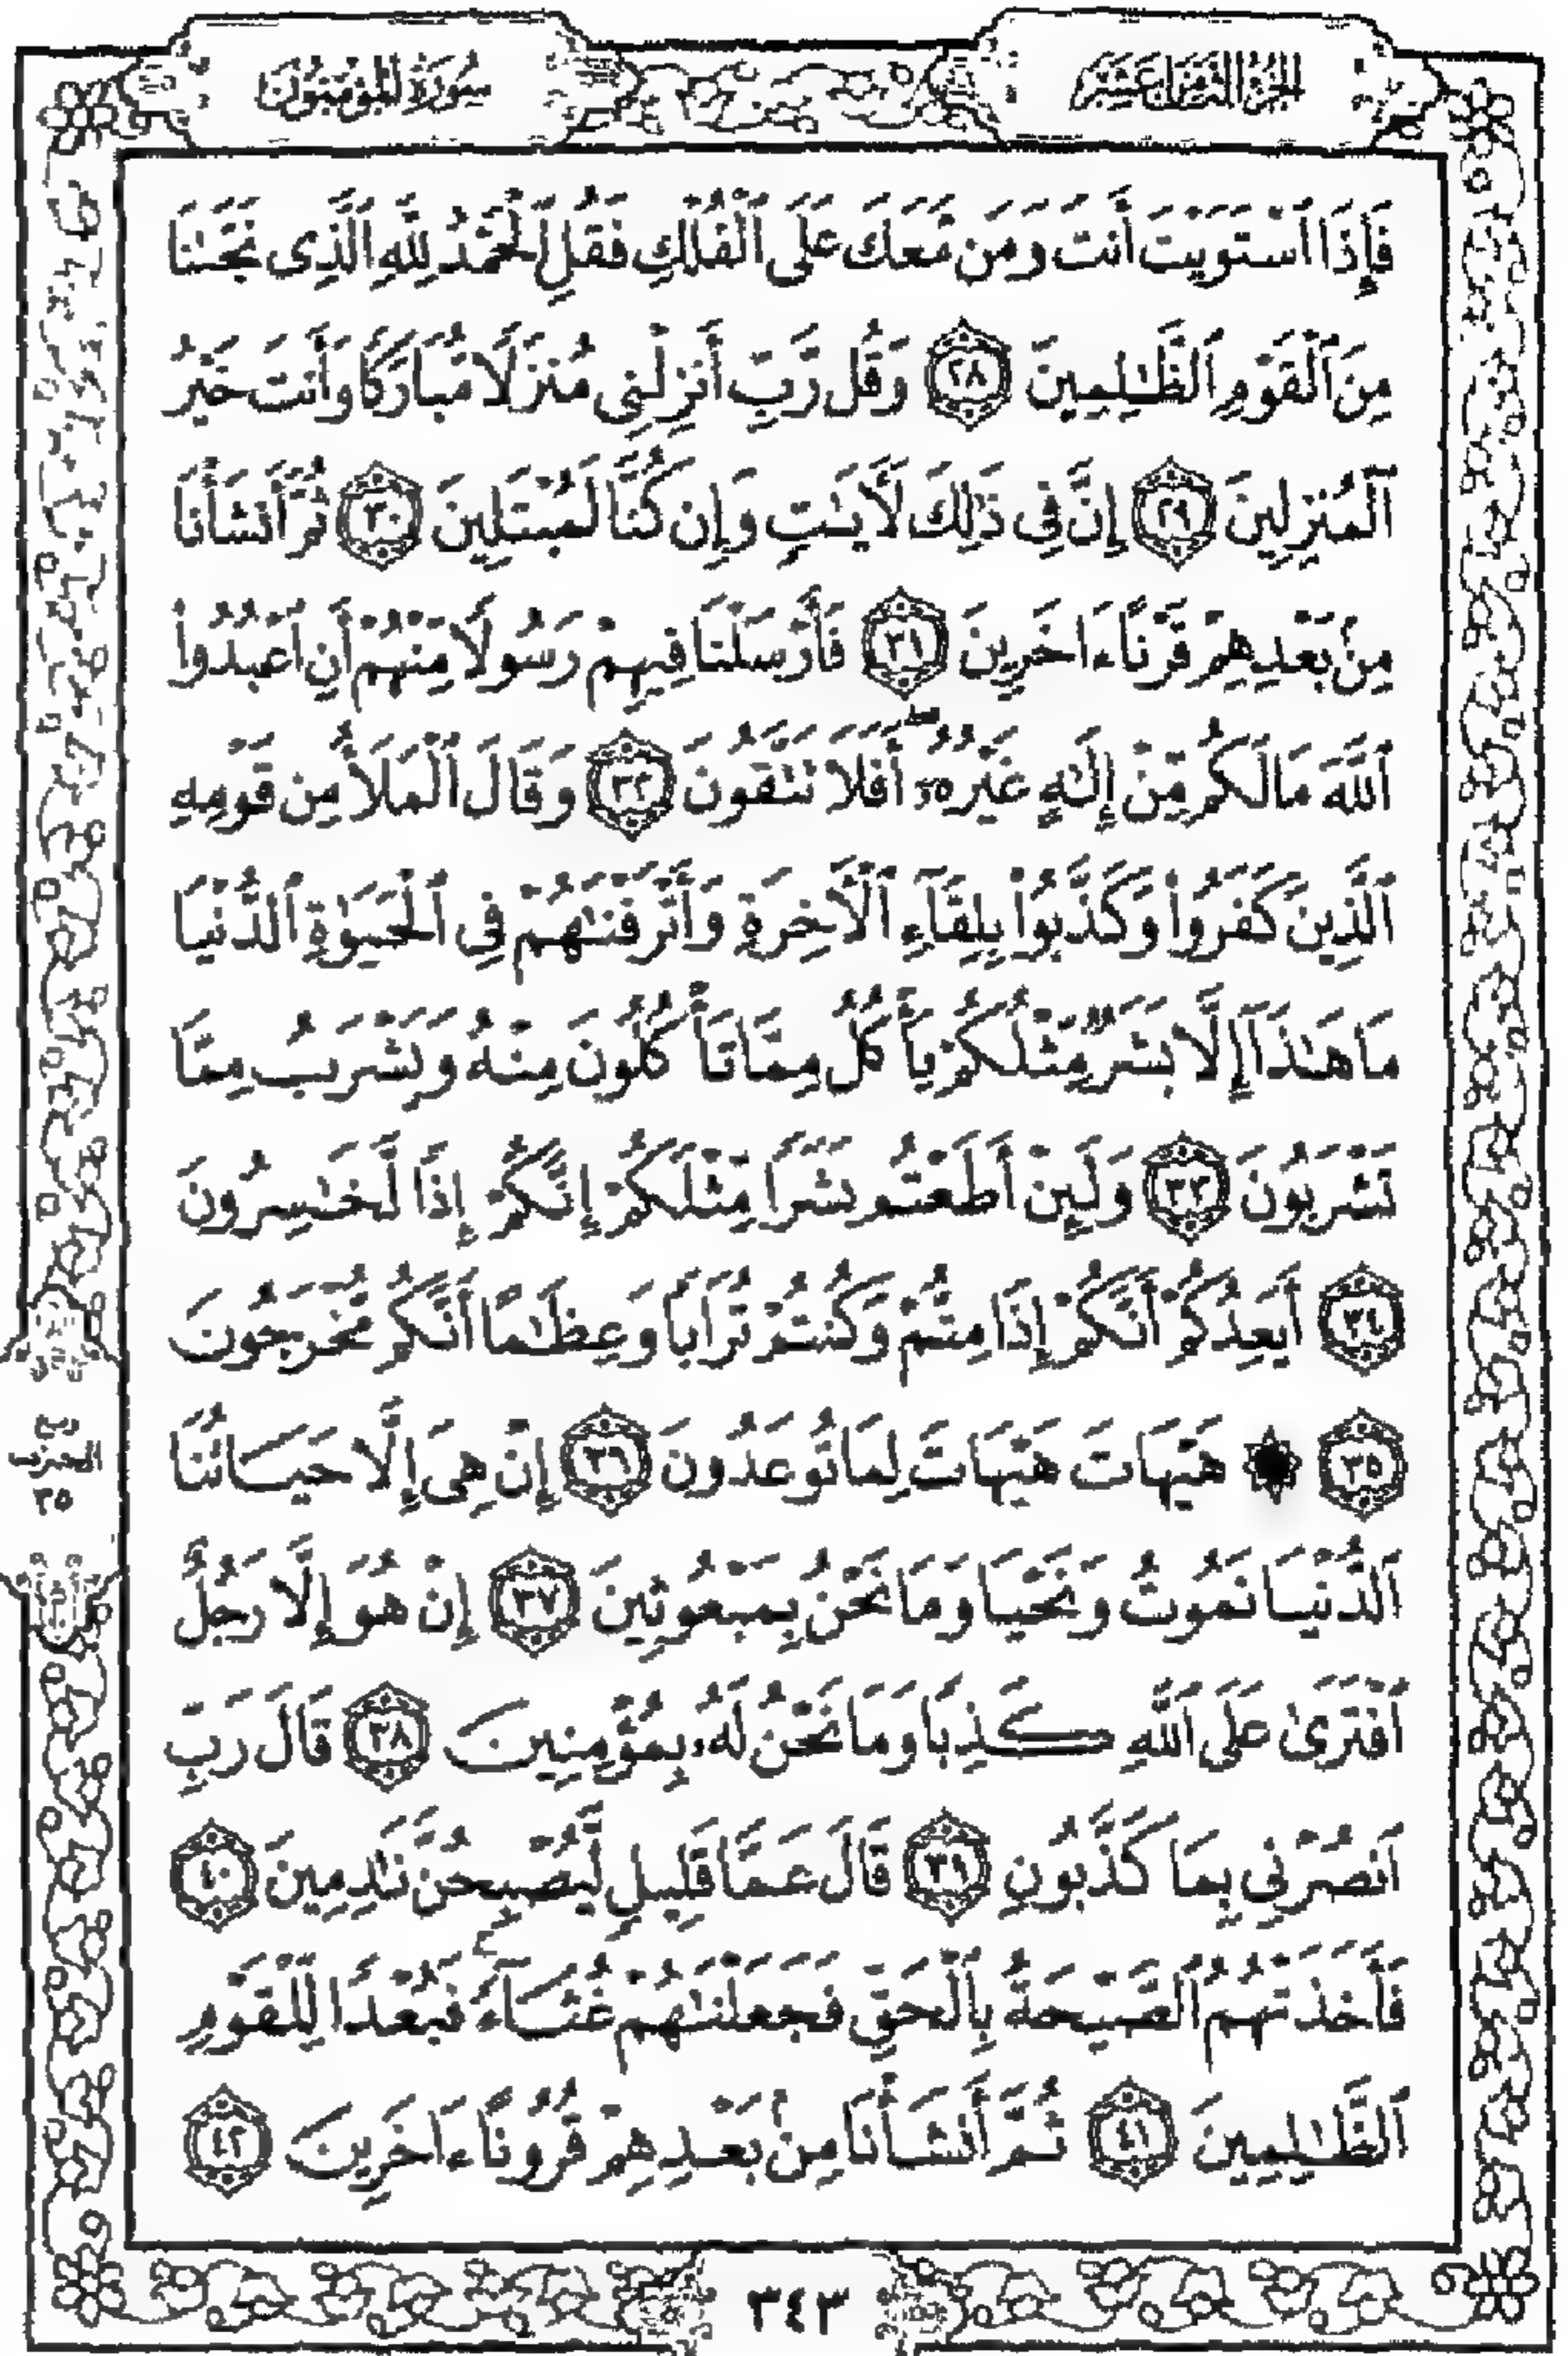 الجزء الثامن عشر
سورة المؤمنون
فَإِذَا ٱسْتَوَيْتَ أَنتَ وَمَن مَّعَكَ عَلَى ٱلْفُلْكِ فَقُلِ ٱلْحَمْدُ لِلَّهِ ٱلَّذِى نَجَّىٰنَا
مِنَ ٱلْقَوْمِ ٱلظَّـٰلِمِينَ ٢٨ وَقُل رَّبِّ أَنزِلْنِى مُنزَلًا مُّبَارَكًا وَأَنتَ خَيْرُ
ٱلْمُنزِلِينَ ٢٩ إِنَّ فِى ذَٰلِكَ لَأَيَـٰتٍ وَإِن كُنَّا لَمُبْتَلِينَ ٣٠ ثُمَّ أَنشَأْنَا
مِنۢ بَعْدِهِمْ قَرْنًا ءَاخَرِينَ ٣١ فَأَرْسَلْنَا فِيهِمْ رَسُولًا مِّنْهُمْ أَنِ ٱعْبُدُوا۟
ٱللَّهَ مَا لَكُم مِّنْ إِلَـٰهٍ غَيْرُهُۥٓ ۖ أَفَلَا تَتَّقُونَ ٣٢ وَقَالَ ٱلْمَلَأُ مِن قَوْمِهِ
ٱلَّذِينَ كَفَرُوا۟ وَكَذَّبُوا۟ بِلِقَآءِ ٱلْأَخِرَةِ وَأَتْرَفْنَـٰهُمْ فِى ٱلْحَيَوٰةِ ٱلدُّنْيَا
مَا هَـٰذَآ إِلَّا بَشَرٌ مِّثْلُكُمْ يَأْكُلُ مِمَّا تَأْكُلُونَ مِنْهُ وَيَشْرَبُ مِمَّا
تَشْرَبُونَ ٣٣ وَلَئِنْ أَطَعْتُم بَشَرًا مِّثْلَكُمْ إِنَّكُمْ إِذًا لَّخَـٰسِرُونَ
٣٤ أَيَعِدُكُمْ أَنَّكُمْ إِذَا مِتُّمْ وَكُنتُمْ تُرَابًا وَعِظَـٰمًا أَنَّكُم مُّخْرَجُونَ
٣٥ ۞ هَيْهَاتَ هَيْهَاتَ لِمَا تُوعَدُونَ ٣٦ إِنْ هِىَ إِلَّا حَيَاتُنَا
ربع
الحزب
٣٥
ٱلدُّنْيَا نَمُوتُ وَنَحْيَا وَمَا نَحْنُ بِمَبْعُوثِينَ ٣٧ إِنْ هُوَ إِلَّا رَجُلٌ
ٱفْتَرَىٰ عَلَى ٱللَّهِ كَذِبًا وَمَا نَحْنُ لَهُۥ بِمُؤْمِنِينَ ٣٨ قَالَ رَبِّ
ٱنصُرْنِى بِمَا كَذَّبُونِ ٣٩ قَالَ عَمَّا قَلِيلٍ لَّيُصْبِحُنَّ نَـٰدِمِينَ ٤٠
فَأَخَذَتْهُمُ ٱلصَّيْحَةُ بِٱلْحَقِّ فَجَعَلْنَـٰهُمْ غُثَآءً ۚ فَبُعْدًا لِّلْقَوْمِ
ٱلظَّـٰلِمِينَ ٤١ ثُمَّ أَنشَأْنَا مِنۢ بَعْدِهِمْ قُرُونًا ءَاخَرِينَ ٤٢
٣٤٣